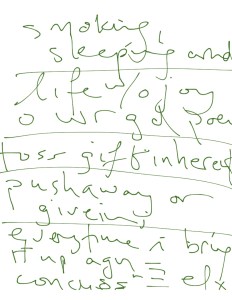 smoking,
sleeping and
life % joy
o wrgd poe
toss gift inhered
push away or
give in,
everytime i bring
it up agn